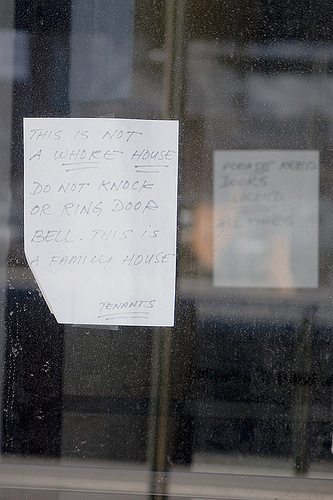 THIS IS NOT
A WHORE HOUSE
DO NOT KNOCK
OR RING DOOR
BELL. THIS IS
A FAMILLY HOUSE
TENANTS
PLEASE KEEP
DOORS
LOCKED
ALL TIMES